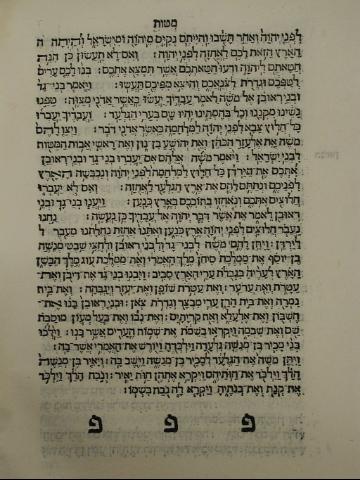 מטות
לפני יהוה ואחר תשבו והייתם נקיים מיהוה ומישראל והיתה ה
הארץ הזאת לכם לאחזה לפני יהוה : ואם לא תעשון כן הנה
חטאתם ליהוה ודעו חטאתכם אשר תמצא אתכם : בנו לכם ערים
לטפכם וגדרת לצנאכם והיצא מפיכם תעשו : ויאמר בני גד
ובני ראובן אל משה לאמר עבדיך יעשו כאשר אדני מצוה : טפנו
נשינו מקננו וכל בהמתנו יהיו שם בערי הגלעד : ועבדיך יעברו
כל חלוץ צבא לפני יהוה למלחמה כאשר אדני דבר : ויצו להם
משה את אלעזר הכהן ואת יהושע בן נון ואת ראשי אבות המטות
לבני ישראל : ויאמר משה אלהם אם יעברו בני גד ובני ראובן
אתכם את הירדן כל חלוץ למלחמה לפני יהוה ונכבשה הארץ
לפניכם ונתתם להם את ארץ הגלעד לאחזה : ואם לא יעברו
חלוצים אתכם ונאחזו בתוככם בארץ כנען : ויענו בני גד ובני
ראובן לאמר את אשר דבר יהוה אל עבדיך כן נעשה : נחנו
נעבר חלוצים לפני יהוה ארץ כנען ואתנו אחזת נחלתנו מעבר ל
לירדן : ויתן להם משה לבני גד ולבני ראובן ולחצי שבט מנשה
בן יוסף את ממלכת סיחן מלך האמרי ואת ממלכת עוג מלך הבשן
הארץ לעריה בגבלת ערי הארץ סביב : ויבנו בני גד את דיבן ואת
עטרת ואת ערער : ואת עטרת שופן ואת יעזר ויגבהה : ואת בית
נמרה ואת בית הרן ערי מבצר וגדרת צאן : ובני ראובן בנו את
חשבון ואת אלעלא ואת קריתים : ואת נבו ואת בעל מעון מוסבת
שם ואת שבמה ויקראו בשמת את שמות הערים אשר בנו : וילכו
בני מכיר בן מנשה גלעדה וילכדה ויורש את האמרי אשר בה :
ויתן משה את הגלעד למכיר בן מנשה וישב בה : ויאיר בן מנשה
הלך וילכד את חותיהם ויקרא אתהן חות יאיר : ונבח הלך וילכד
את קנת ואת בנתיה ויקרא לה נבח בשמו :
פ פ פ